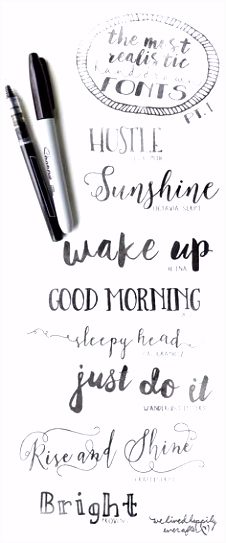 the most
realistic
handdrawn
FONTS
PT. 1
HUSTLE
Sunshine
OCTAVIA SCRIPT
wake up
GOOD MORNING
sleepy head
just do it
WANDERLUST LETTERS
Rise and Shine
Bright
we lived happily
ever after